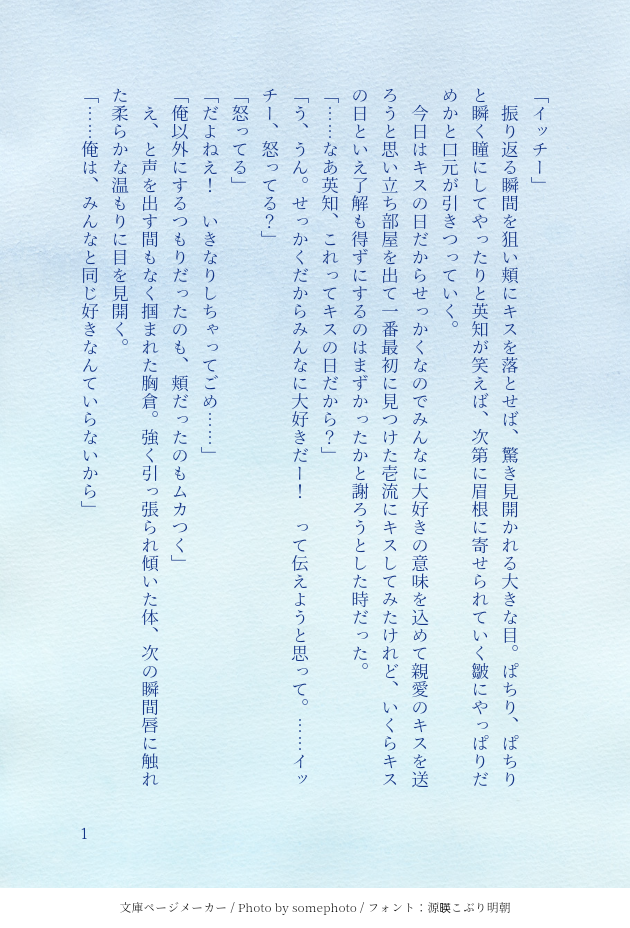 「イッチー」
　振り返る瞬間を狙い頬にキスを落とせば、驚き見開かれる大きな目。ぱちり、ぱちり
と瞬く瞳にしてやったりと英知が笑えば、次第に眉根に寄せられていく皺にやっぱりだ
めかと口元が引きつっていく。
　今日はキスの日だからせっかくなのでみんなに大好きの意味を込めて親愛のキスを送
ろうと思い立ち部屋を出て一番最初に見つけた壱流にキスしてみたけれど、いくらキス
の日といえ了解も得ずにするのはまずかったかと謝ろうとした時だった。
「……なあ英知、これってキスの日だから？」
「う、うん。せっかくだからみんなに大好きだー！　って伝えようと思って。……イッ
チー、怒ってる？」
「怒ってる」
「だよねえ！　いきなりしちゃってごめ……」
「俺以外にするつもりだったのも、頬だったのもムカつく」
　え、と声を出す間もなく掴まれた胸倉。強く引っ張られ傾いた体、次の瞬間唇に触れ
た柔らかな温もりに目を見開く。
「……俺は、みんなと同じ好きなんていらないから」
1
文庫ページメーカー / Photo by somephoto / フォント：源暎こぶり明朝